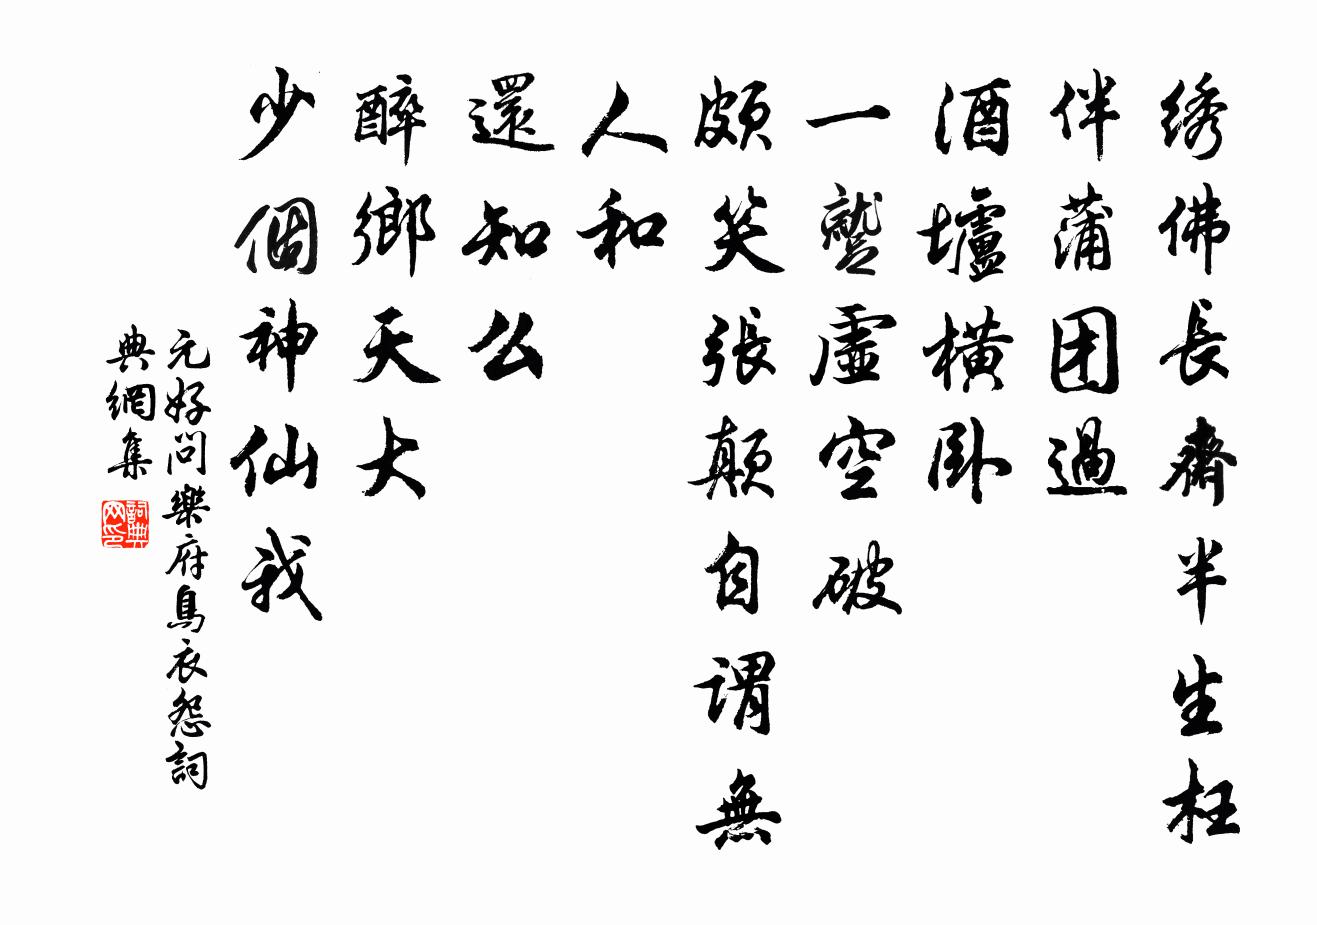 绣佛長齋半生枉
伴蒲团過
酒壚橫卧
一蹵虚空破
頗笑張顛自謂無
人和
還知么
醉鄉天大
少個神仙我
元好问樂府烏衣怨詞
典網集
詞典网印